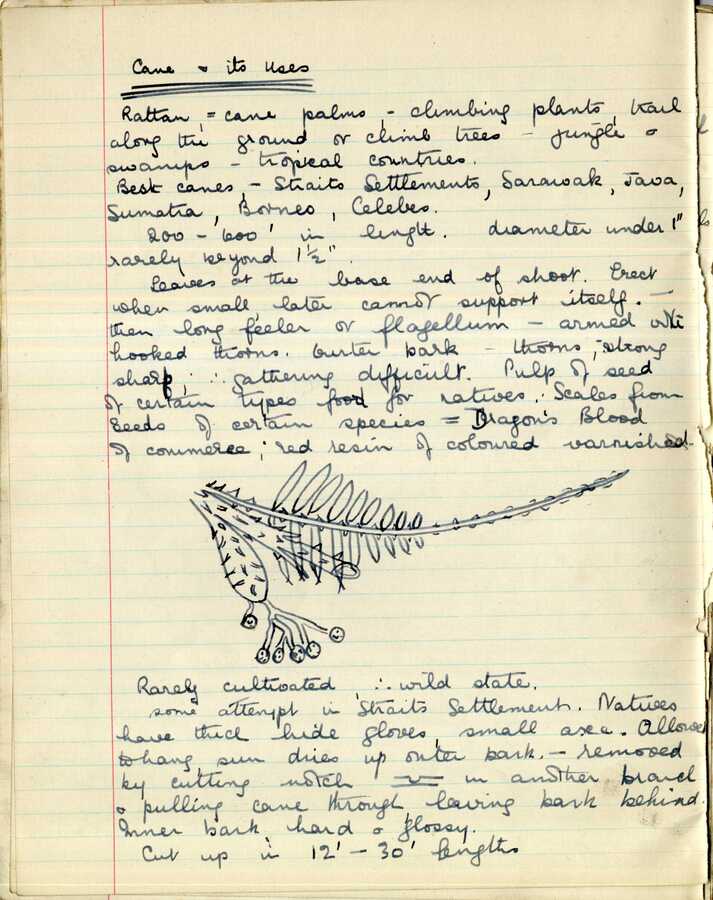 Cane & its Uses
Rattan = cane palms - climbing plants, trail
along the ground or climb trees - jungle &
swamps - tropical countries.
Best canes - Straits Settlements, Sarawak, Java,
Sumatra, Borneo, Celebes.
200 - 600' in length. diameter under 1"
rarely beyond 1½".
Leaves at the base end of shoot. Erect
when small, later cannot support itself. -
then long feeler or flagellum - armed with
hooked thorns. Outer bark - thorns, strong
sharp, ∴ gathering difficult. Pulp of seed
of certain types food for natives. Scales from
seeds of certain species = Dragon's Blood
of commerce; red resin of coloured varnished.
Rarely cultivated ∴ wild state.
some attempt in Straits Settlement. Natives
have thick hide gloves, small axe. Allowed
to hang, sun dries up outer bark. - removed
by cutting notch in another branch
& pulling cane through leaving bark behind.
Inner bark, hard & glossy.
Cut up in 12' - 30' lengths